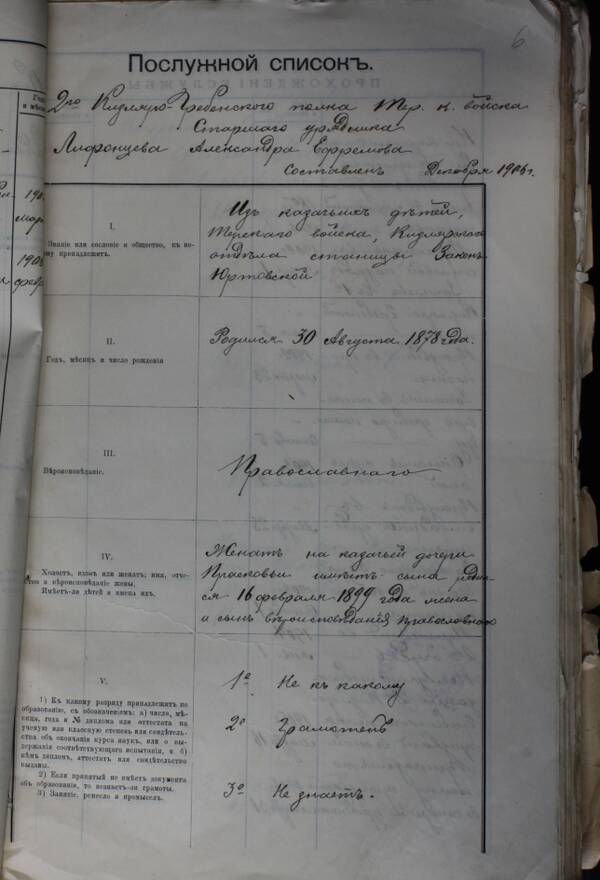 6
Послужной списокъ.
2го Кизляро-Гребенского полка Тер. к. войска
Старшаго урядника
Александра Ефремова
Составленъ Декабря 1906 г.
I.
Званіе или сословіе и общество, къ ко-
ему принадлежитъ.
Изъ казачьихъ дѣтей,
Терскаго войска, Кизлярскаго
отдѣла станицы Законъ
Юртовской
II.
Годъ, мѣсяц и число рожденія
Родился 30 Августа 1878 года.
III.
Вѣроисповѣданіе.
Православнаго
IV.
Холостъ, вдовъ или женатъ; имя, отче-
ство и вѣроисповѣданіе жены.
Имѣетъ-ли дѣтей и имена ихъ.
Женатъ на казачьей дочери
Прасковьи имѣетъ сына родил-
ся 16 февраля 1899 года жена
и сынъ вѣроисповѣданія православнаго
V.
1) Къ какому разряду принадлежитъ по
образованію, съ обозначеніемъ: а) числа, мѣ-
сяца, года и № диплома или аттестата на
ученую или классную степень или свидѣтель-
ства объ окончаніи курса наукъ, или о вы-
держаніи соотвѣтствующаго испытанія, и б)
кѣмъ дипломъ, аттестатъ или свидѣтельство
выданы.
2) Если принятый не имѣетъ документа
объ образованіи, то познаетъ-ли грамоты.
3) Занятіе, ремесло и промыселъ.
1е Не къ какому
2е Грамотенъ
3е Не знаетъ.